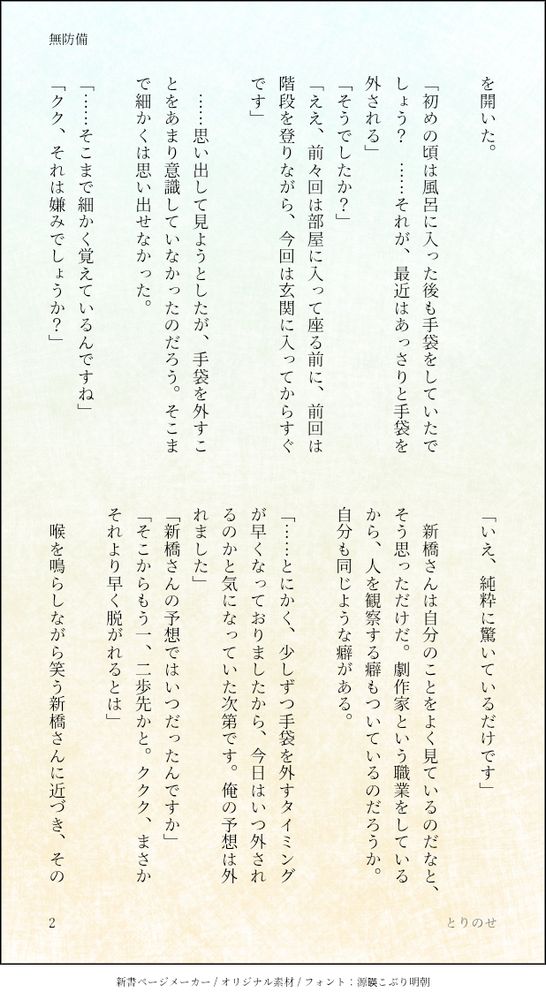 無防備
を開いた。
「初めの頃は風呂に入った後も手袋をしていたで
しょう？　……それが、最近はあっさりと手袋を
外される」
「そうでしたか？」
「ええ、前々回は部屋に入って座る前に、前回は
階段を登りながら、今回は玄関に入ってからすぐ
です」
……思い出して見ようとしたが、手袋を外すこ
とをあまり意識していなかったのだろう。そこま
で細かくは思い出せなかった。
「……そこまで細かく覚えているんですね」
「クク、それは嫌みでしょうか？」
「いえ、純粋に驚いているだけです」
新橋さんは自分のことをよく見ているのだなと、
そう思っただけだ。劇作家という職業をしている
から、人を観察する癖もついているのだろうか。
自分も同じような癖がある。
「……とにかく、少しずつ手袋を外すタイミング
が早くなっておりましたから、今日はいつ外され
るのかと気になっていた次第です。俺の予想は外
れました」
「新橋さんの予想ではいつだったんですか」
「そこからもう一、二歩先かと。ククク、まさか
それより早く脱がれるとは」
喉を鳴らしながら笑う新橋さんに近づき、その
2
とりのせ
新書ページメーカー / オリジナル素材 / フォント：源暎こぶり明朝